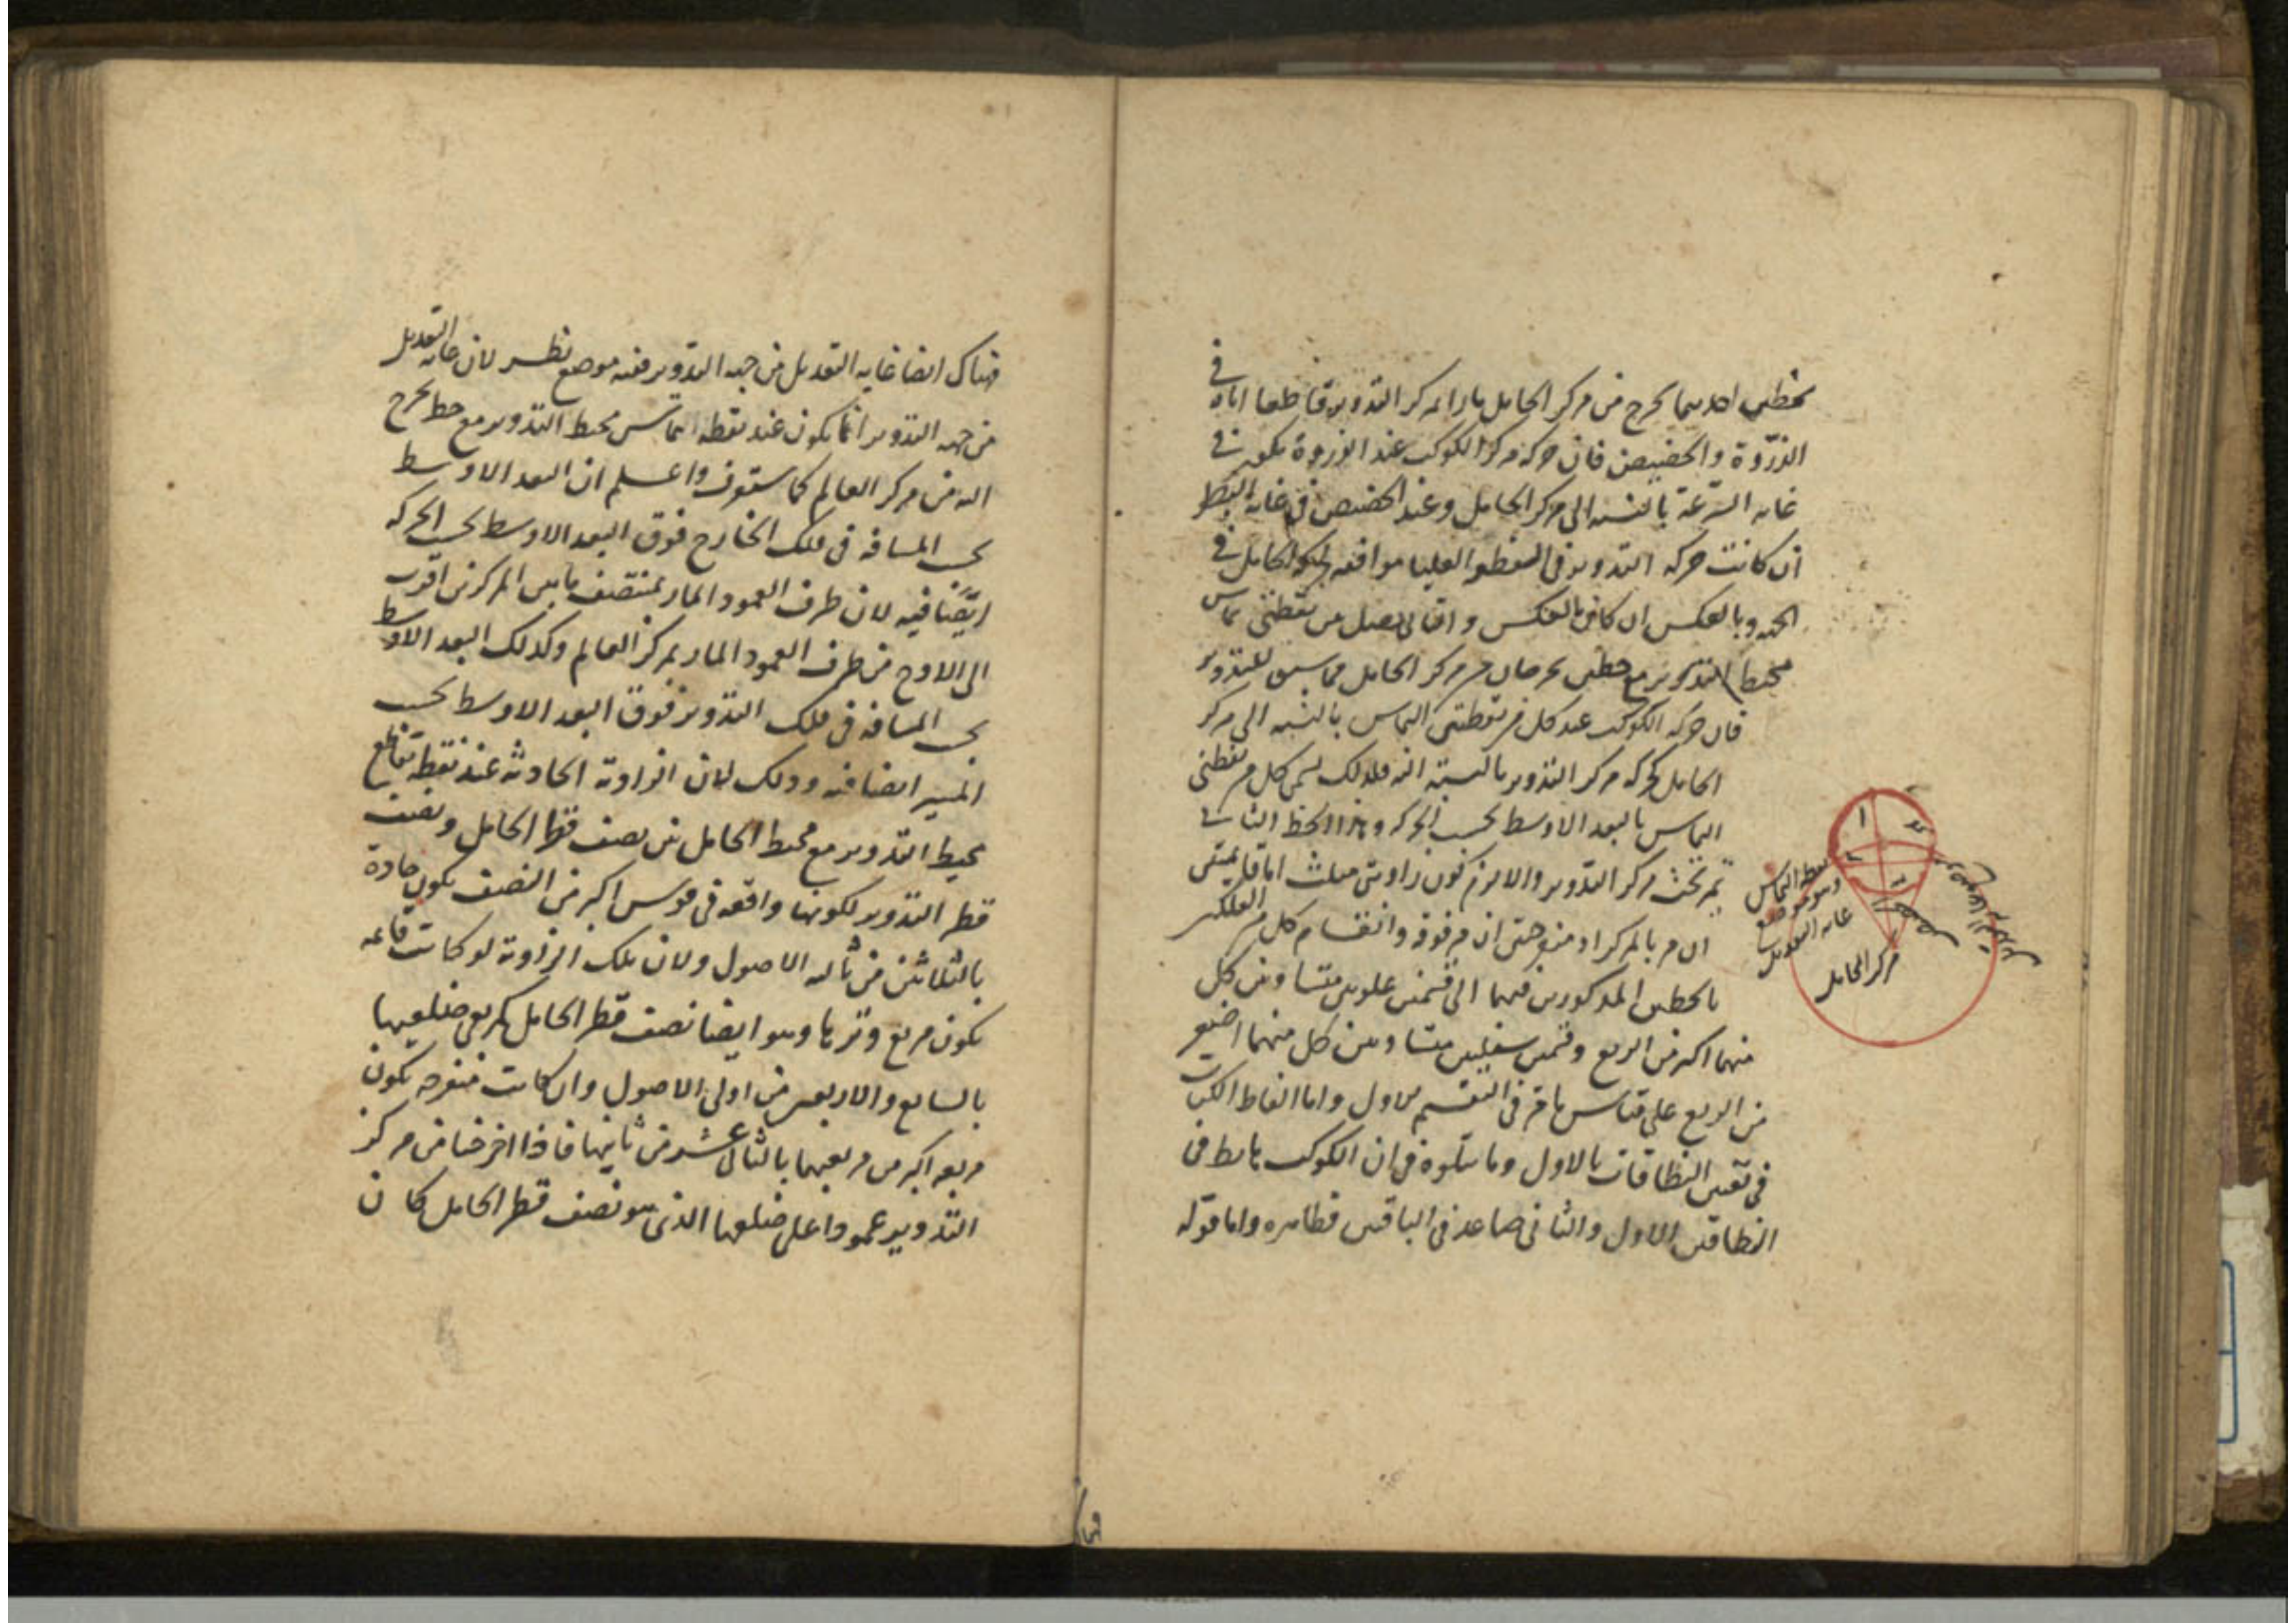 بخطين احدهما يخرج من مركز الحامل مارا بمركز التدوير قاطعا اياه في
الذروة والحضيض فان حركة مركز الكوكب عند الذروة يكون في
غاية السرعة بالنسبة الى مركز الحامل وعند الحضيض في غاية البطؤ
ان كانت حركة التدوير في القطعة العليا موافقة لحركة الحامل في
الجهة وبالعكس ان كان بالعكس والثاني يصل بين نقطتي تماس
محيط التدوير مع خطين يخرجان من مركز الحامل مماسين للتدوير
فان حركة الكوكب عند كل من نقطتي التماس بالنسبة الى مركز
الحامل كحركة مركز التدوير بالنسبة اليه فلذلك يسمى كل من نقطتي
التماس بالبعد الاوسط بحسب الحركة وهذا الخط الثاني
يمر تحت مركز التدوير والا لزم كون زاويتي مثلث اما قايمتين
ان مر بالمركز او منفرجتين ان مر فوقه وانقسام كل من الفلكين
بالخطين المذكورين فيهما الى قسمين علويين متساويين كل
منهما اكبر من الربع وقسمين سفليين متساويين كل منهما اصغر
من الربع على قياس ما مر في التقسيم الاول واما الفاظ الكتاب
في تعيين النطاقات بالاول وما يتلوه من ان الكوكب هابط في
النطاقين الاول والثاني صاعد في الباقيين فظاهره واما قوله
نقطة التماس
وهو موضع
غاية التعديل
مركز الحامل
فهناك ايضا غاية التعديل من جهة التدوير ففيه موضع نظر لان غاية التعديل
من جهة التدوير انما يكون عند نقطة التماس محيط التدوير مع خط يخرج
اليه من مركز العالم كما ستعرف واعلم ان البعد الاوسط
بحسب المسافة في فلك الخارج فوق البعد الاوسط بحسب الحركة
ايضا فيه لان طرف العمود المار بمنتصف ما بين المركزين اقرب
الى الاوج من طرف العمود المار بمركز العالم وكذلك البعد الاوسط
بحسب المسافة في فلك التدوير فوق البعد الاوسط بحسب
المسير ايضا فيه وذلك لان الزاوية الحادثة عند نقطة تقاطع
محيط التدوير مع محيط الحامل من نصف قطر الحامل ونصف
قطر التدوير لكونها واقعة في قوس اكبر من النصف يكون حادة
بالثلاثين من ثالثة الاصول ولان تلك الزاوية لو كانت قائمة
يكون مربع وترها وهو ايضا نصف قطر الحامل كمربعي ضلعيها
بالسابع والاربعين من اولى الاصول وان كانت منفرجة يكون
مربعه اكبر من مربعيهما بالثاني عشر من ثانيها فاذا اخرجنا من مركز
التدوير عمودا على ضلعها الذي هو نصف قطر الحامل كان